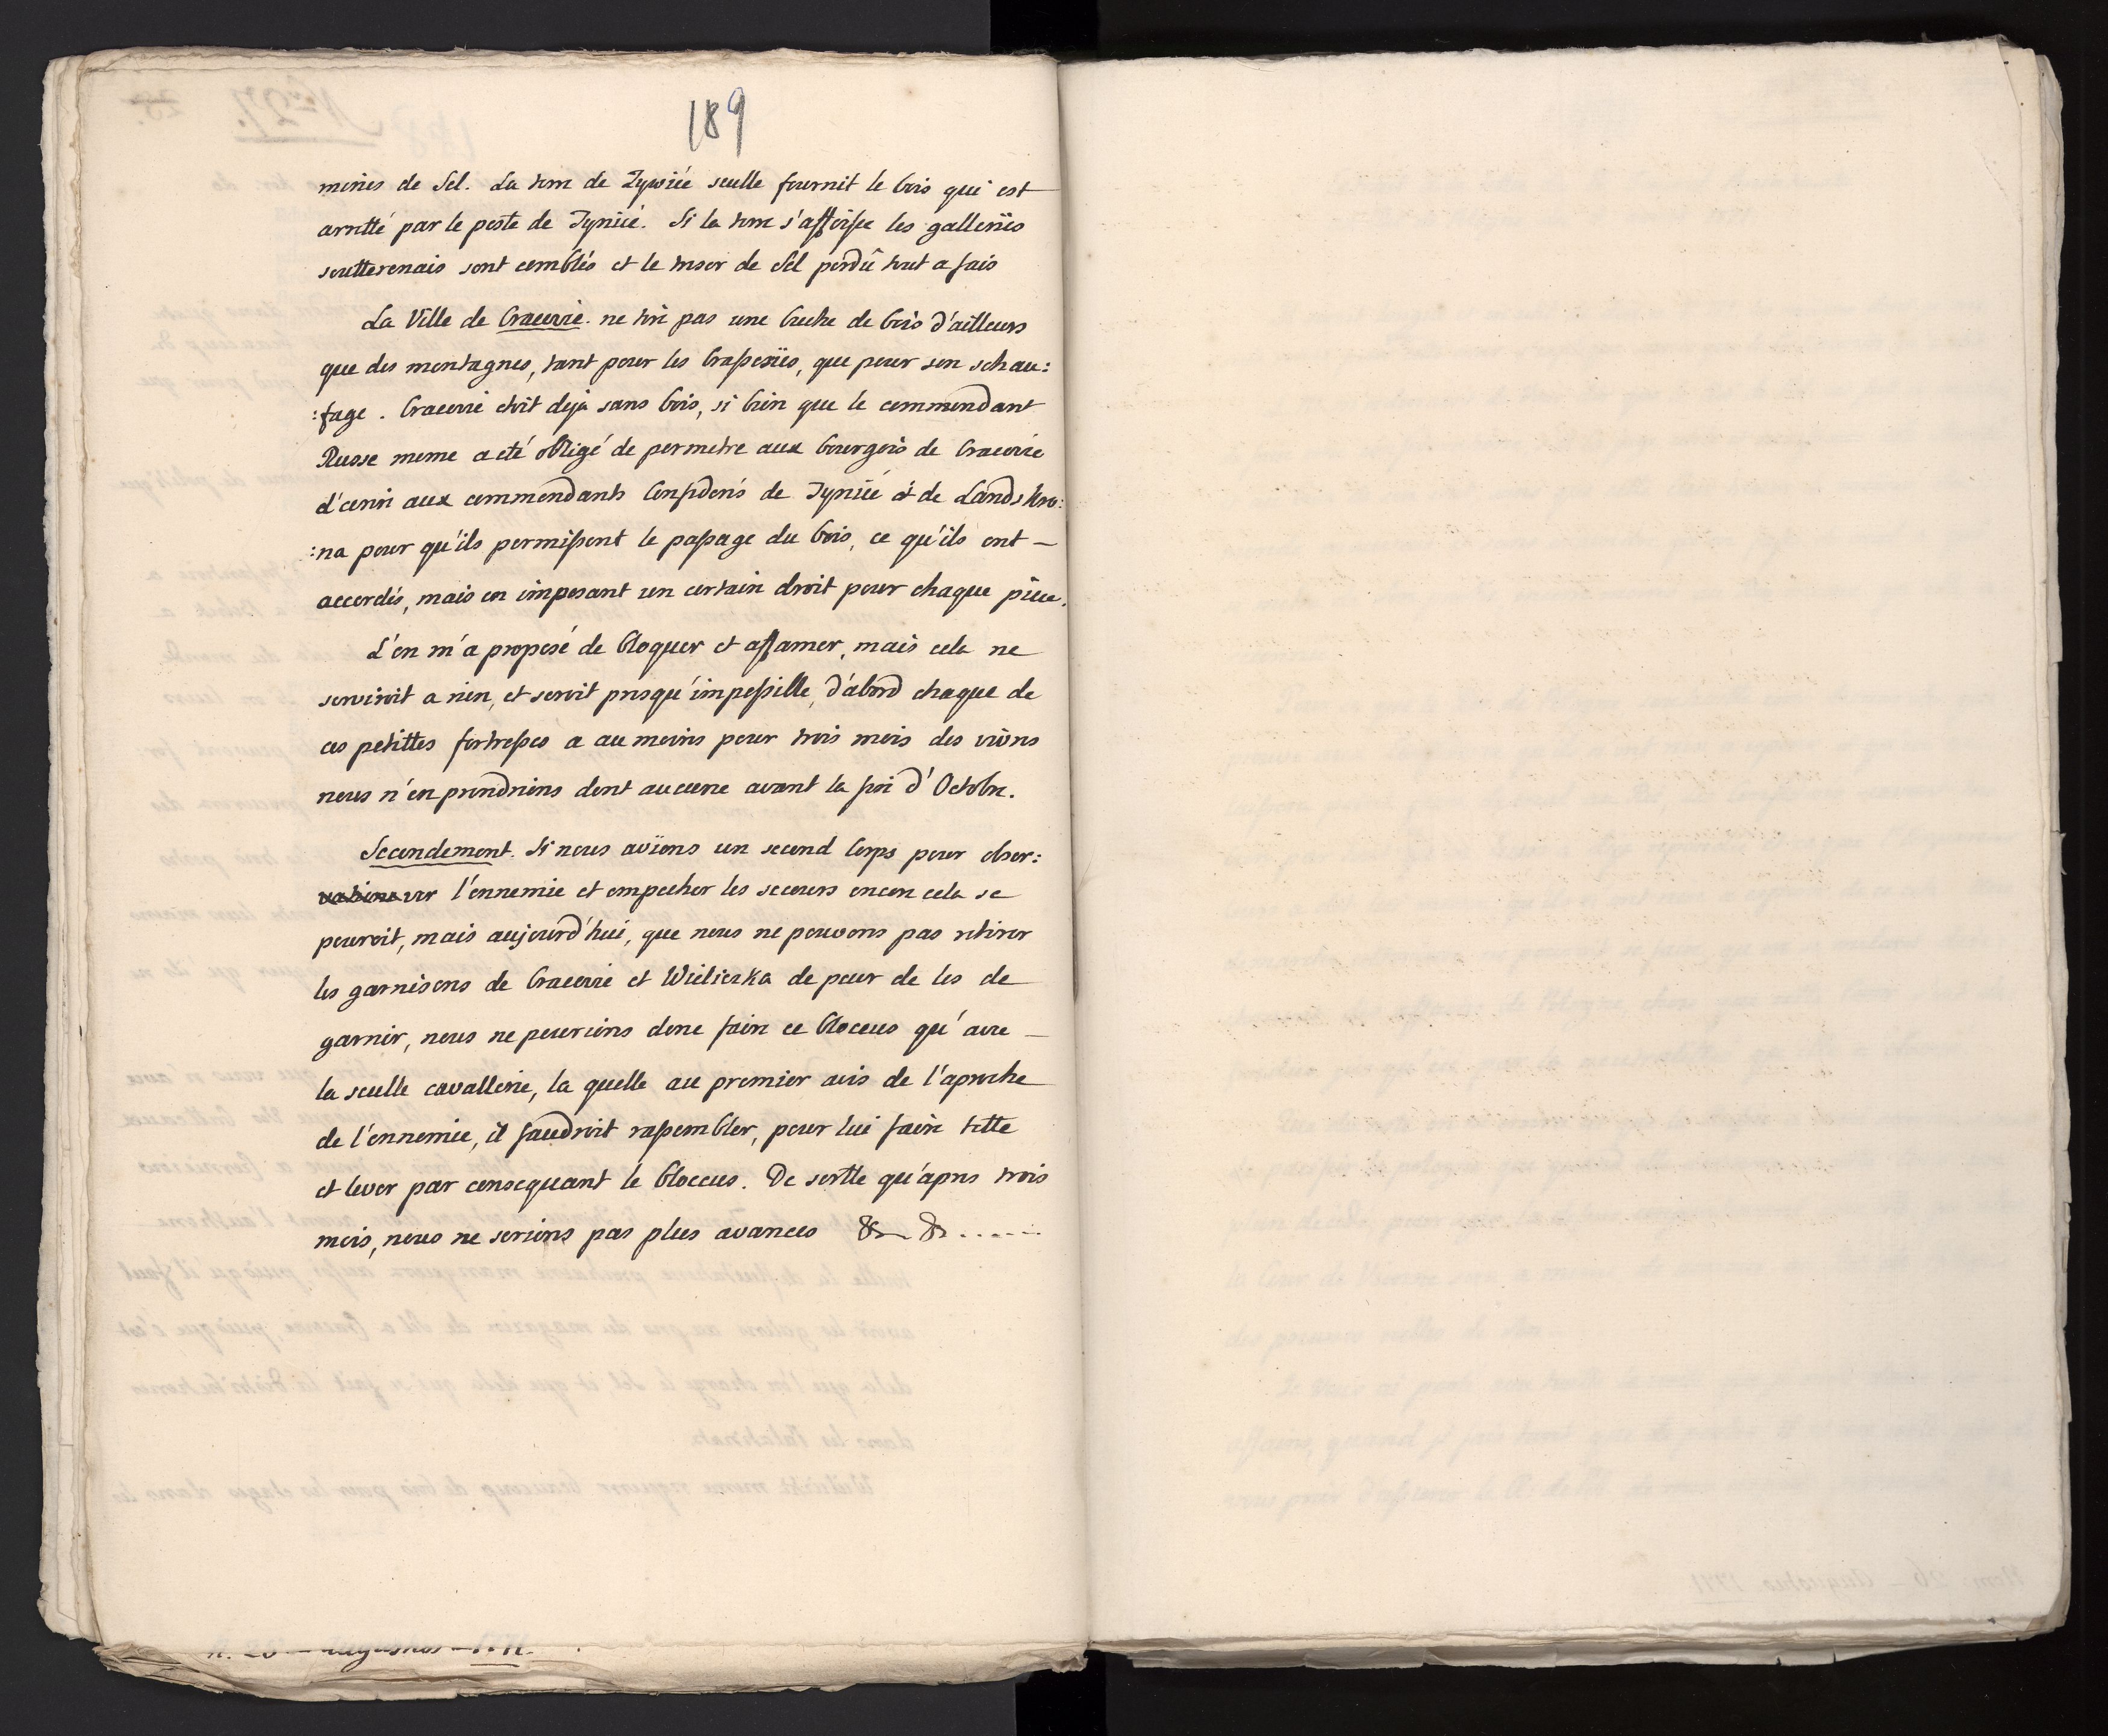 189
mines de Sel. La terre de Zywiéé seulle fournit le bois qui est
arretté par le poste de Tyniéé. Si la terre s'affoisse les galleriïes
soutterenais sont comblés et le tresor de Sel perdû tout a fais
La Ville de Cracovie. ne tire pas une buche de bois d'ailleurs
que des montagnes, tant pour les brasseriïes, que pour son schau:
:fage. Cracovie etoit deja sans bois, si bien que le commendant
Russe meme a eté obligé de permetre aux bourgois de Cracovie
d'ecrire aux commendants Confideré's de Tyniéé et de Landskro:
:na pour qu'ils permissent le passage du bois, ce qu'ils ont —
accordés, mais en imposant un certain droit pour chaque piece.
L'on m'a proposé de bloquer et affamer, mais cela ne
serviroit a rien, et seroit presqu'impossille, d'abord chaque de
ces petittes fortresses a au moins pour trois mois des vivres
nous n'en prendriens dont aucune avant la fin d'Octobre.
Secondement. Si nous aviens un second Corps pour obser:
ver l'ennemie et empecher les secours encore cela se
pouroit, mais aujourd'hui, que nous ne pouvons pas retirer
les garnisons de Cracovie et Wieliczka de peur de les de
garnir, nous ne pouriens donc faire ce blocus qu'avec —
la seulle cavallerie, la quelle au premier avis de l'aproche
de l'ennemie, il faudroit rassembler, pour lui faire tette
et lever par consequant le bloccus. De sortte qu'apres trois
mois, nous ne seriens pas plus avancés &c &c ......